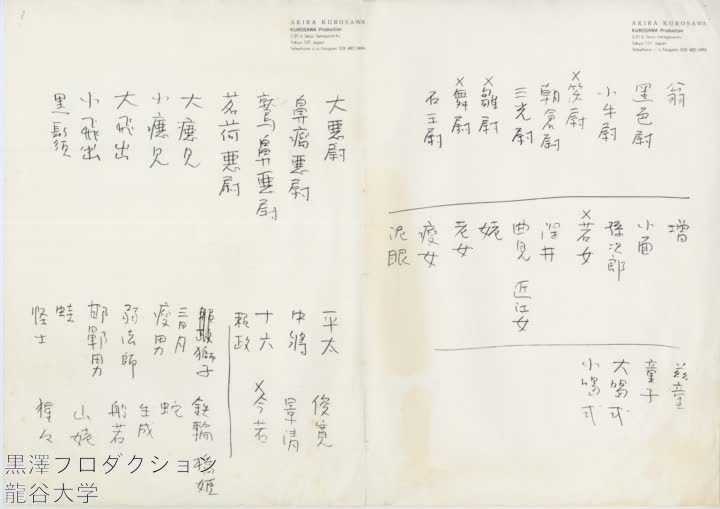 AKIRA KUROSAWA
KUROSAWA Production
翁
黒色尉
小牛尉
×笑尉
朝倉尉
三光尉
×皺尉
×舞尉
石王尉
増
小面
孫次郎
×若女
深井
曲見 近江女
姥
老女
痩女
泥眼
慈童
童子
大喝式
小喝式
AKIRA KUROSAWA
KUROSAWA Production
大悪尉
鼻瘤悪尉
鷲鼻悪尉
茗荷悪尉
大癋見
小癋見
大飛出
小飛出
黒髭
平太 俊寛
中将 景清
十六 ×今若
頼政
獅子 鉄輪 橋姫
三日月 蛇
痩男 生成
弱法師 般若
邯鄲男 山姥
蛙
怪士 猩々
黒澤プロダクション
龍谷大学